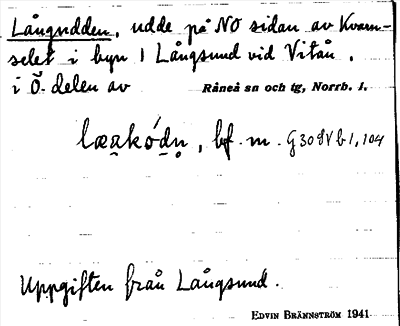 Långudden, udde på NO sidan av Kvarn-
selet i byn 1 Långsund vid Vitån,
i Ö. delen av Råneå sn och tg, Norrb. l.
bf. m.
Uppgiften från Långsund.
EDVIN BRÄNNSTRÖM 1941